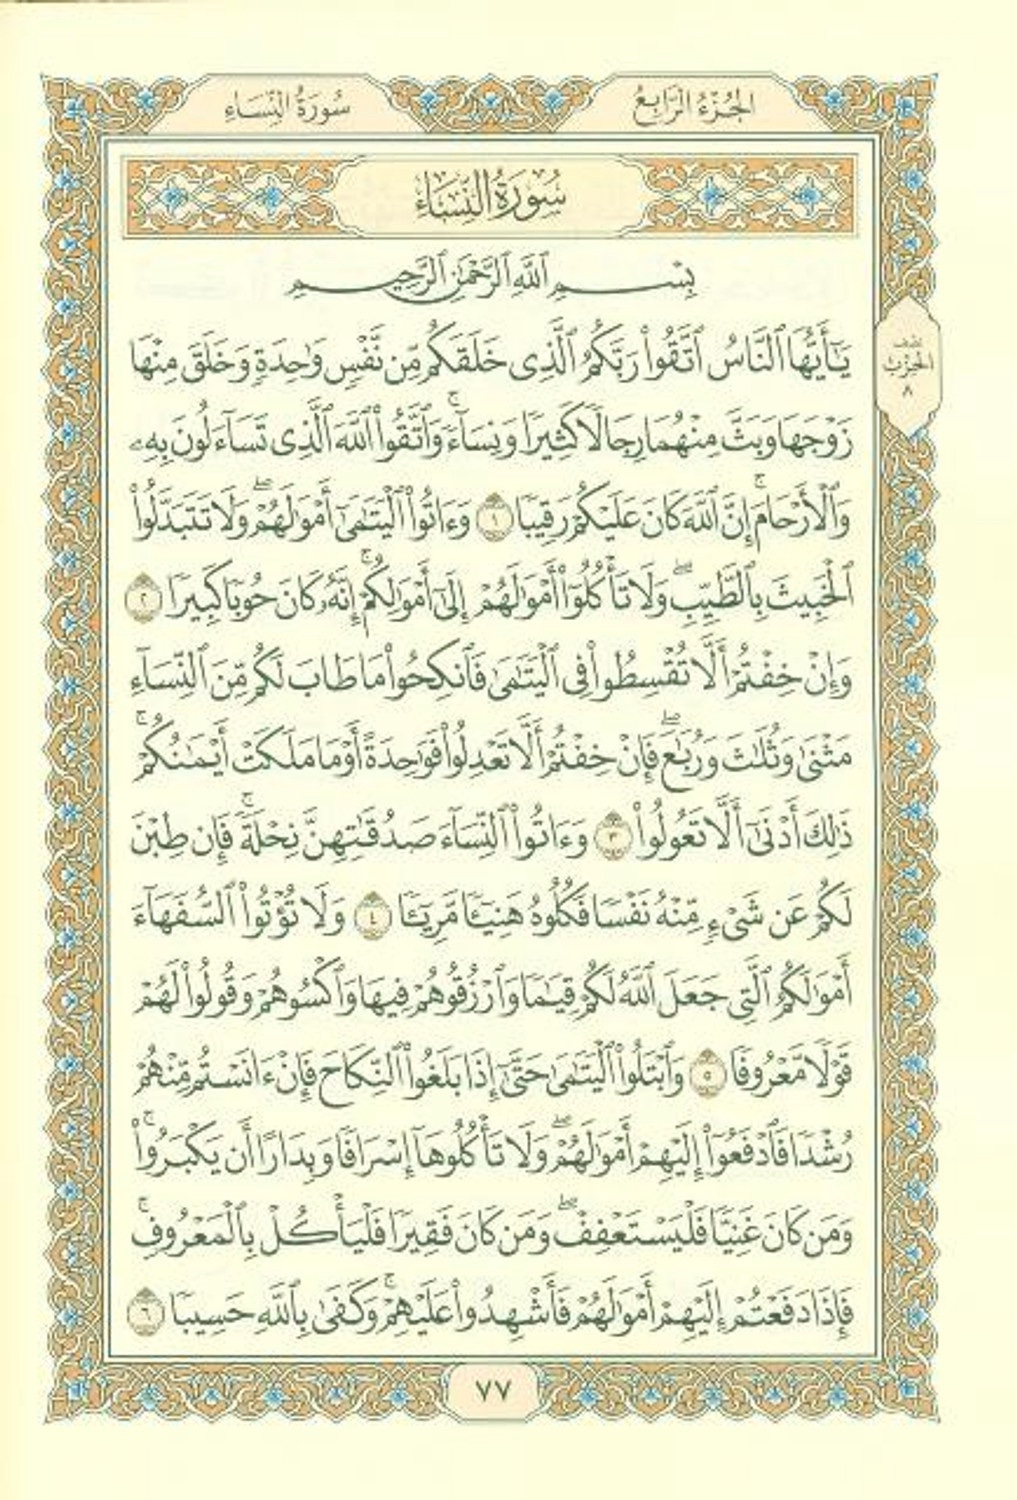 الجُزْءُ الرَّابِعُ
سُورَةُ النِّسَاءِ
سُورَةُ النِّسَاءِ
بِسْمِ ٱللَّهِ ٱلرَّحْمَٰنِ ٱلرَّحِيمِ
نصف
الحِزْب
٨
يَٰٓأَيُّهَا ٱلنَّاسُ ٱتَّقُوا۟ رَبَّكُمُ ٱلَّذِى خَلَقَكُم مِّن نَّفْسٍ وَٰحِدَةٍ وَخَلَقَ مِنْهَا
زَوْجَهَا وَبَثَّ مِنْهُمَا رِجَالًا كَثِيرًا وَنِسَآءً ۚ وَٱتَّقُوا۟ ٱللَّهَ ٱلَّذِى تَسَآءَلُونَ بِهِۦ
وَٱلْأَرْحَامَ ۚ إِنَّ ٱللَّهَ كَانَ عَلَيْكُمْ رَقِيبًا ١ وَءَاتُوا۟ ٱلْيَتَٰمَىٰٓ أَمْوَٰلَهُمْ ۖ وَلَا تَتَبَدَّلُوا۟
ٱلْخَبِيثَ بِٱلطَّيِّبِ ۖ وَلَا تَأْكُلُوٓا۟ أَمْوَٰلَهُمْ إِلَىٰٓ أَمْوَٰلِكُمْ ۚ إِنَّهُۥ كَانَ حُوبًا كَبِيرًا ٢
وَإِنْ خِفْتُمْ أَلَّا تُقْسِطُوا۟ فِى ٱلْيَتَٰمَىٰ فَٱنكِحُوا۟ مَا طَابَ لَكُم مِّنَ ٱلنِّسَآءِ
مَثْنَىٰ وَثُلَٰثَ وَرُبَٰعَ ۖ فَإِنْ خِفْتُمْ أَلَّا تَعْدِلُوا۟ فَوَٰحِدَةً أَوْ مَا مَلَكَتْ أَيْمَٰنُكُمْ ۚ
ذَٰلِكَ أَدْنَىٰٓ أَلَّا تَعُولُوا۟ ٣ وَءَاتُوا۟ ٱلنِّسَآءَ صَدُقَٰتِهِنَّ نِحْلَةً ۚ فَإِن طِبْنَ
لَكُمْ عَن شَىْءٍ مِّنْهُ نَفْسًا فَكُلُوهُ هَنِيٓـًٔا مَّرِيٓـًٔا ٤ وَلَا تُؤْتُوا۟ ٱلسُّفَهَآءَ
أَمْوَٰلَكُمُ ٱلَّتِى جَعَلَ ٱللَّهُ لَكُمْ قِيَٰمًا وَٱرْزُقُوهُمْ فِيهَا وَٱكْسُوهُمْ وَقُولُوا۟ لَهُمْ
قَوْلًا مَّعْرُوفًا ٥ وَٱبْتَلُوا۟ ٱلْيَتَٰمَىٰ حَتَّىٰٓ إِذَا بَلَغُوا۟ ٱلنِّكَاحَ فَإِنْ ءَانَسْتُم مِّنْهُمْ
رُشْدًا فَٱدْفَعُوٓا۟ إِلَيْهِمْ أَمْوَٰلَهُمْ ۖ وَلَا تَأْكُلُوهَآ إِسْرَافًا وَبِدَارًا أَن يَكْبَرُوا۟ ۚ
وَمَن كَانَ غَنِيًّا فَلْيَسْتَعْفِفْ ۖ وَمَن كَانَ فَقِيرًا فَلْيَأْكُلْ بِٱلْمَعْرُوفِ ۚ
فَإِذَا دَفَعْتُمْ إِلَيْهِمْ أَمْوَٰلَهُمْ فَأَشْهِدُوا۟ عَلَيْهِمْ ۚ وَكَفَىٰ بِٱللَّهِ حَسِيبًا ٦
٧٧